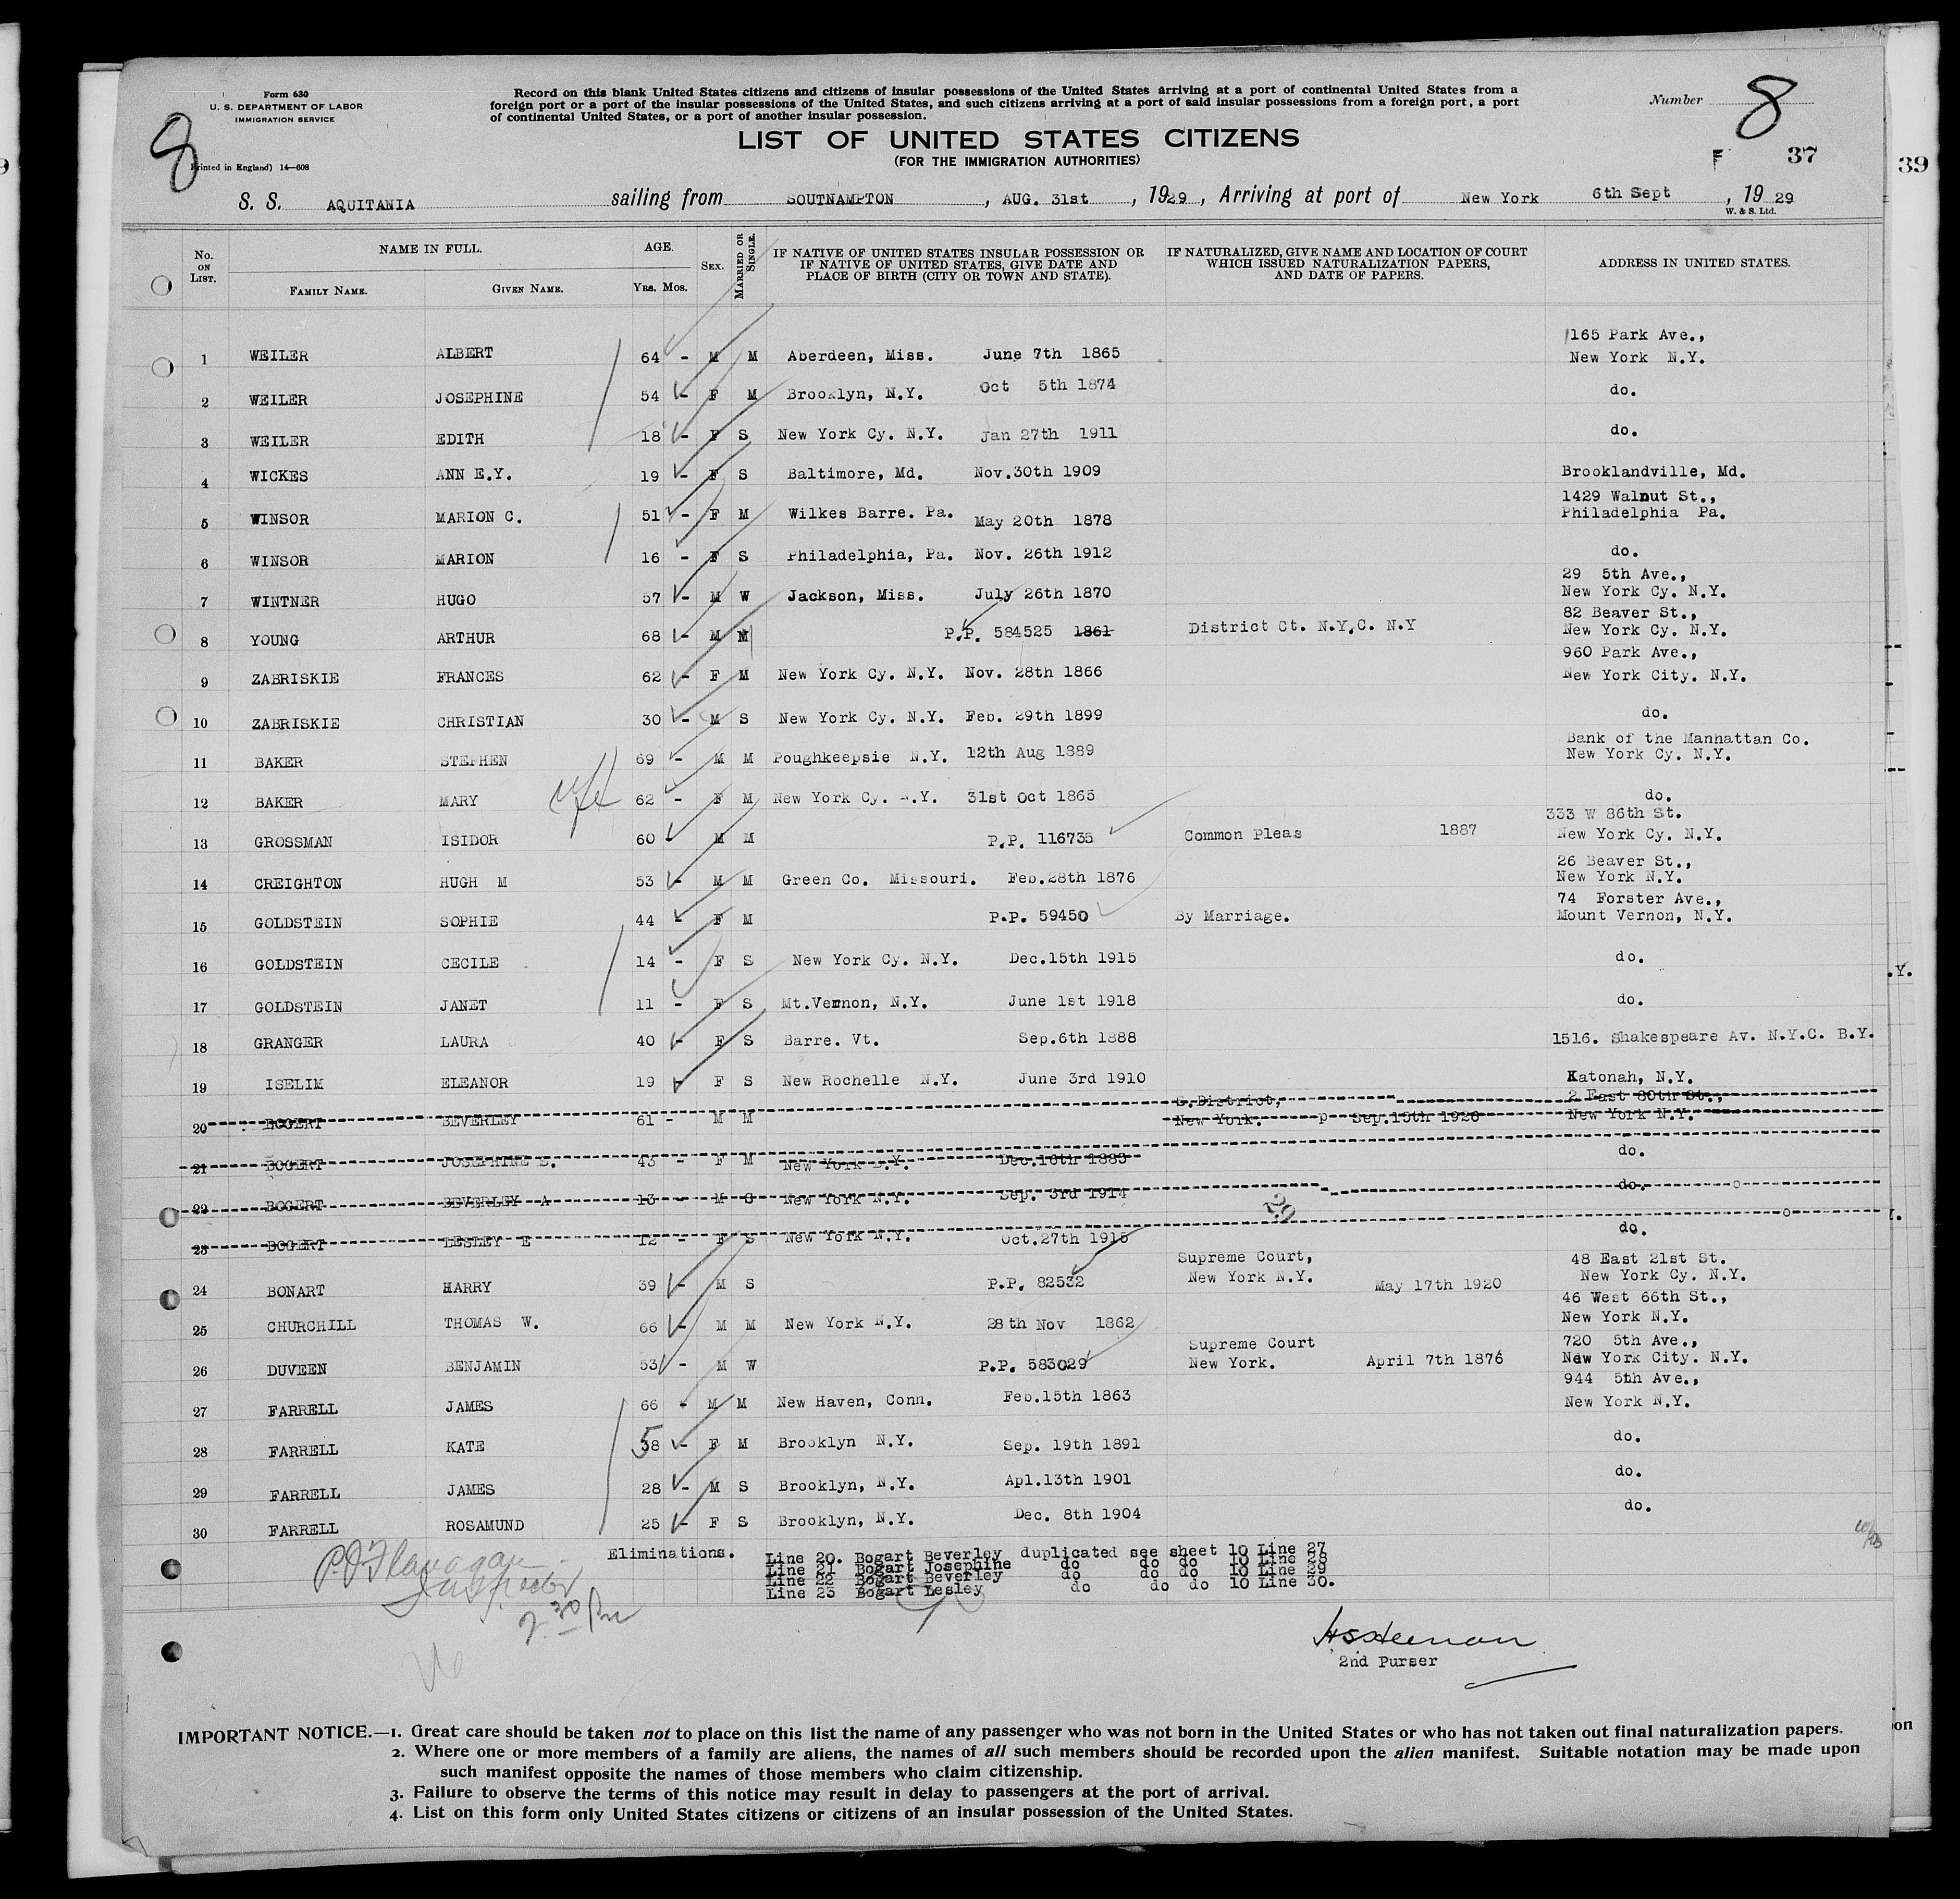 Form 630
U. S. DEPARTMENT OF LABOR
IMMIGRATION SERVICE
Printed in England) 14—608
8
Record on this blank United States citizens and citizens of insular possessions of the United States arriving at a port of continental United States from a
foreign port or a port of the insular possessions of the United States, and such citizens arriving at a port of said insular possessions from a foreign port, a port
of continental United States, or a port of another insular possession.
LIST OF UNITED STATES CITIZENS
(FOR THE IMMIGRATION AUTHORITIES)
Number 8
F 37
39
S. S. AQUITANIA sailing from SOUTNAMPTON, AUG. 31st, 1929, Arriving at port of New York 6th Sept, 1929
W. & S. Ltd.
No. ON LIST. NAME IN FULL. FAMILY NAME. GIVEN NAME. AGE. YRS. MOS. SEX. MARRIED OR SINGLE. IF NATIVE OF UNITED STATES INSULAR POSSESSION OR IF NATIVE OF UNITED STATES, GIVE DATE AND PLACE OF BIRTH (CITY OR TOWN AND STATE). IF NATURALIZED, GIVE NAME AND LOCATION OF COURT WHICH ISSUED NATURALIZATION PAPERS, AND DATE OF PAPERS. ADDRESS IN UNITED STATES.
1 WEILER ALBERT 64 - M M Aberdeen, Miss. June 7th 1865 1165 Park Ave., New York N.Y.
2 WEILER JOSEPHINE 54 - F M Brooklyn, N.Y. Oct 5th 1874 do.
3 WEILER EDITH 18 - F S New York Cy. N.Y. Jan 27th 1911 do.
4 WICKES ANN E.Y. 19 - F S Baltimore, Md. Nov.30th 1909 Brooklandville, Md.
5 WINSOR MARION C. 51 - F M Wilkes Barre. Pa. May 20th 1878 1429 Walnut St., Philadelphia Pa.
6 WINSOR MARION 16 - F S Philadelphia, Pa. Nov. 26th 1912 do.
7 WINTNER HUGO 57 - M W Jackson, Miss. July 26th 1870 29 5th Ave., New York Cy. N.Y.
8 YOUNG ARTHUR 68 - M M P.P. 584525 1861 District Ct. N.Y.C. N.Y 82 Beaver St., New York Cy. N.Y.
9 ZABRISKIE FRANCES 62 - F M New York Cy. N.Y. Nov. 28th 1866 960 Park Ave., New York City. N.Y.
10 ZABRISKIE CHRISTIAN 30 - M S New York Cy. N.Y. Feb. 29th 1899 do.
11 BAKER STEPHEN 69 - M M Poughkeepsie N.Y. 12th Aug 1889 Bank of the Manhattan Co. New York Cy. N.Y.
12 BAKER MARY 62 - F M New York Cy. N.Y. 31st Oct 1865 do.
13 GROSSMAN ISIDOR 60 - M M P.P. 116735 Common Pleas 1887 333 W 86th St. New York Cy. N.Y.
14 CREIGHTON HUGH M 53 - M M Green Co. Missouri. Feb.28th 1876 26 Beaver St., New York N.Y.
15 GOLDSTEIN SOPHIE 44 - F M P.P. 59450 By Marriage. 74 Forster Ave., Mount Vernon, N.Y.
16 GOLDSTEIN CECILE 14 - F S New York Cy. N.Y. Dec.15th 1915 do.
17 GOLDSTEIN JANET 11 - F S Mt.Vernon, N.Y. June 1st 1918 do.
18 GRANGER LAURA 40 - F S Barre. Vt. Sep.6th 1888 1516. Shakespeare Av. N.Y.C. B.Y.
19 ISELIM ELEANOR 19 - F S New Rochelle N.Y. June 3rd 1910 Katonah, N.Y.
20 BOGERT BEVERLEY 61 - M M S.District, New York. p Sep.15th 1926 2 East 80th St., New York N.Y.
21 BOGERT JOSEPHINE S. 43 - F M New York N.Y. Dec.16th 1885 do.
22 BOGERT BEVERLEY A 13 - M S New York N.Y. Sep. 3rd 1914 do.
23 BOGERT LESLEY E 12 - F S New York N.Y. Oct.27th 1915 do.
24 BONART HARRY 39 - M S P.P. 82532 Supreme Court, New York N.Y. May 17th 1920 48 East 21st St. New York Cy. N.Y.
25 CHURCHILL THOMAS W. 66 - M M New York N.Y. 28th Nov 1862 46 West 66th St., New York N.Y.
26 DUVEEN BENJAMIN 53 - M W P.P. 583029 Supreme Court New York. April 7th 1876 720 5th Ave., New York City. N.Y.
27 FARRELL JAMES 66 - M M New Haven, Conn. Feb.15th 1863 944 5th Ave., New York N.Y.
28 FARRELL KATE 58 - F M Brooklyn N.Y. Sep. 19th 1891 do.
29 FARRELL JAMES 28 - M S Brooklyn, N.Y. Apl.13th 1901 do.
30 FARRELL ROSAMUND 25 - F S Brooklyn, N.Y. Dec. 8th 1904 do.
Eliminations. Line 20. Bogart Beverley duplicated see sheet 10 Line 27
Line 21 Bogart Josephine do do do 10 Line 28
Line 22 Bogart Beverley do do do 10 Line 29
Line 23 Bogart Lesley do do do 10 Line 30.
P.J. Flanagan
Inspector
2.30 Pm
2nd Purser
IMPORTANT NOTICE.—1. Great care should be taken not to place on this list the name of any passenger who was not born in the United States or who has not taken out final naturalization papers.
2. Where one or more members of a family are aliens, the names of all such members should be recorded upon the alien manifest. Suitable notation may be made upon
such manifest opposite the names of those members who claim citizenship.
3. Failure to observe the terms of this notice may result in delay to passengers at the port of arrival.
4. List on this form only United States citizens or citizens of an insular possession of the United States.